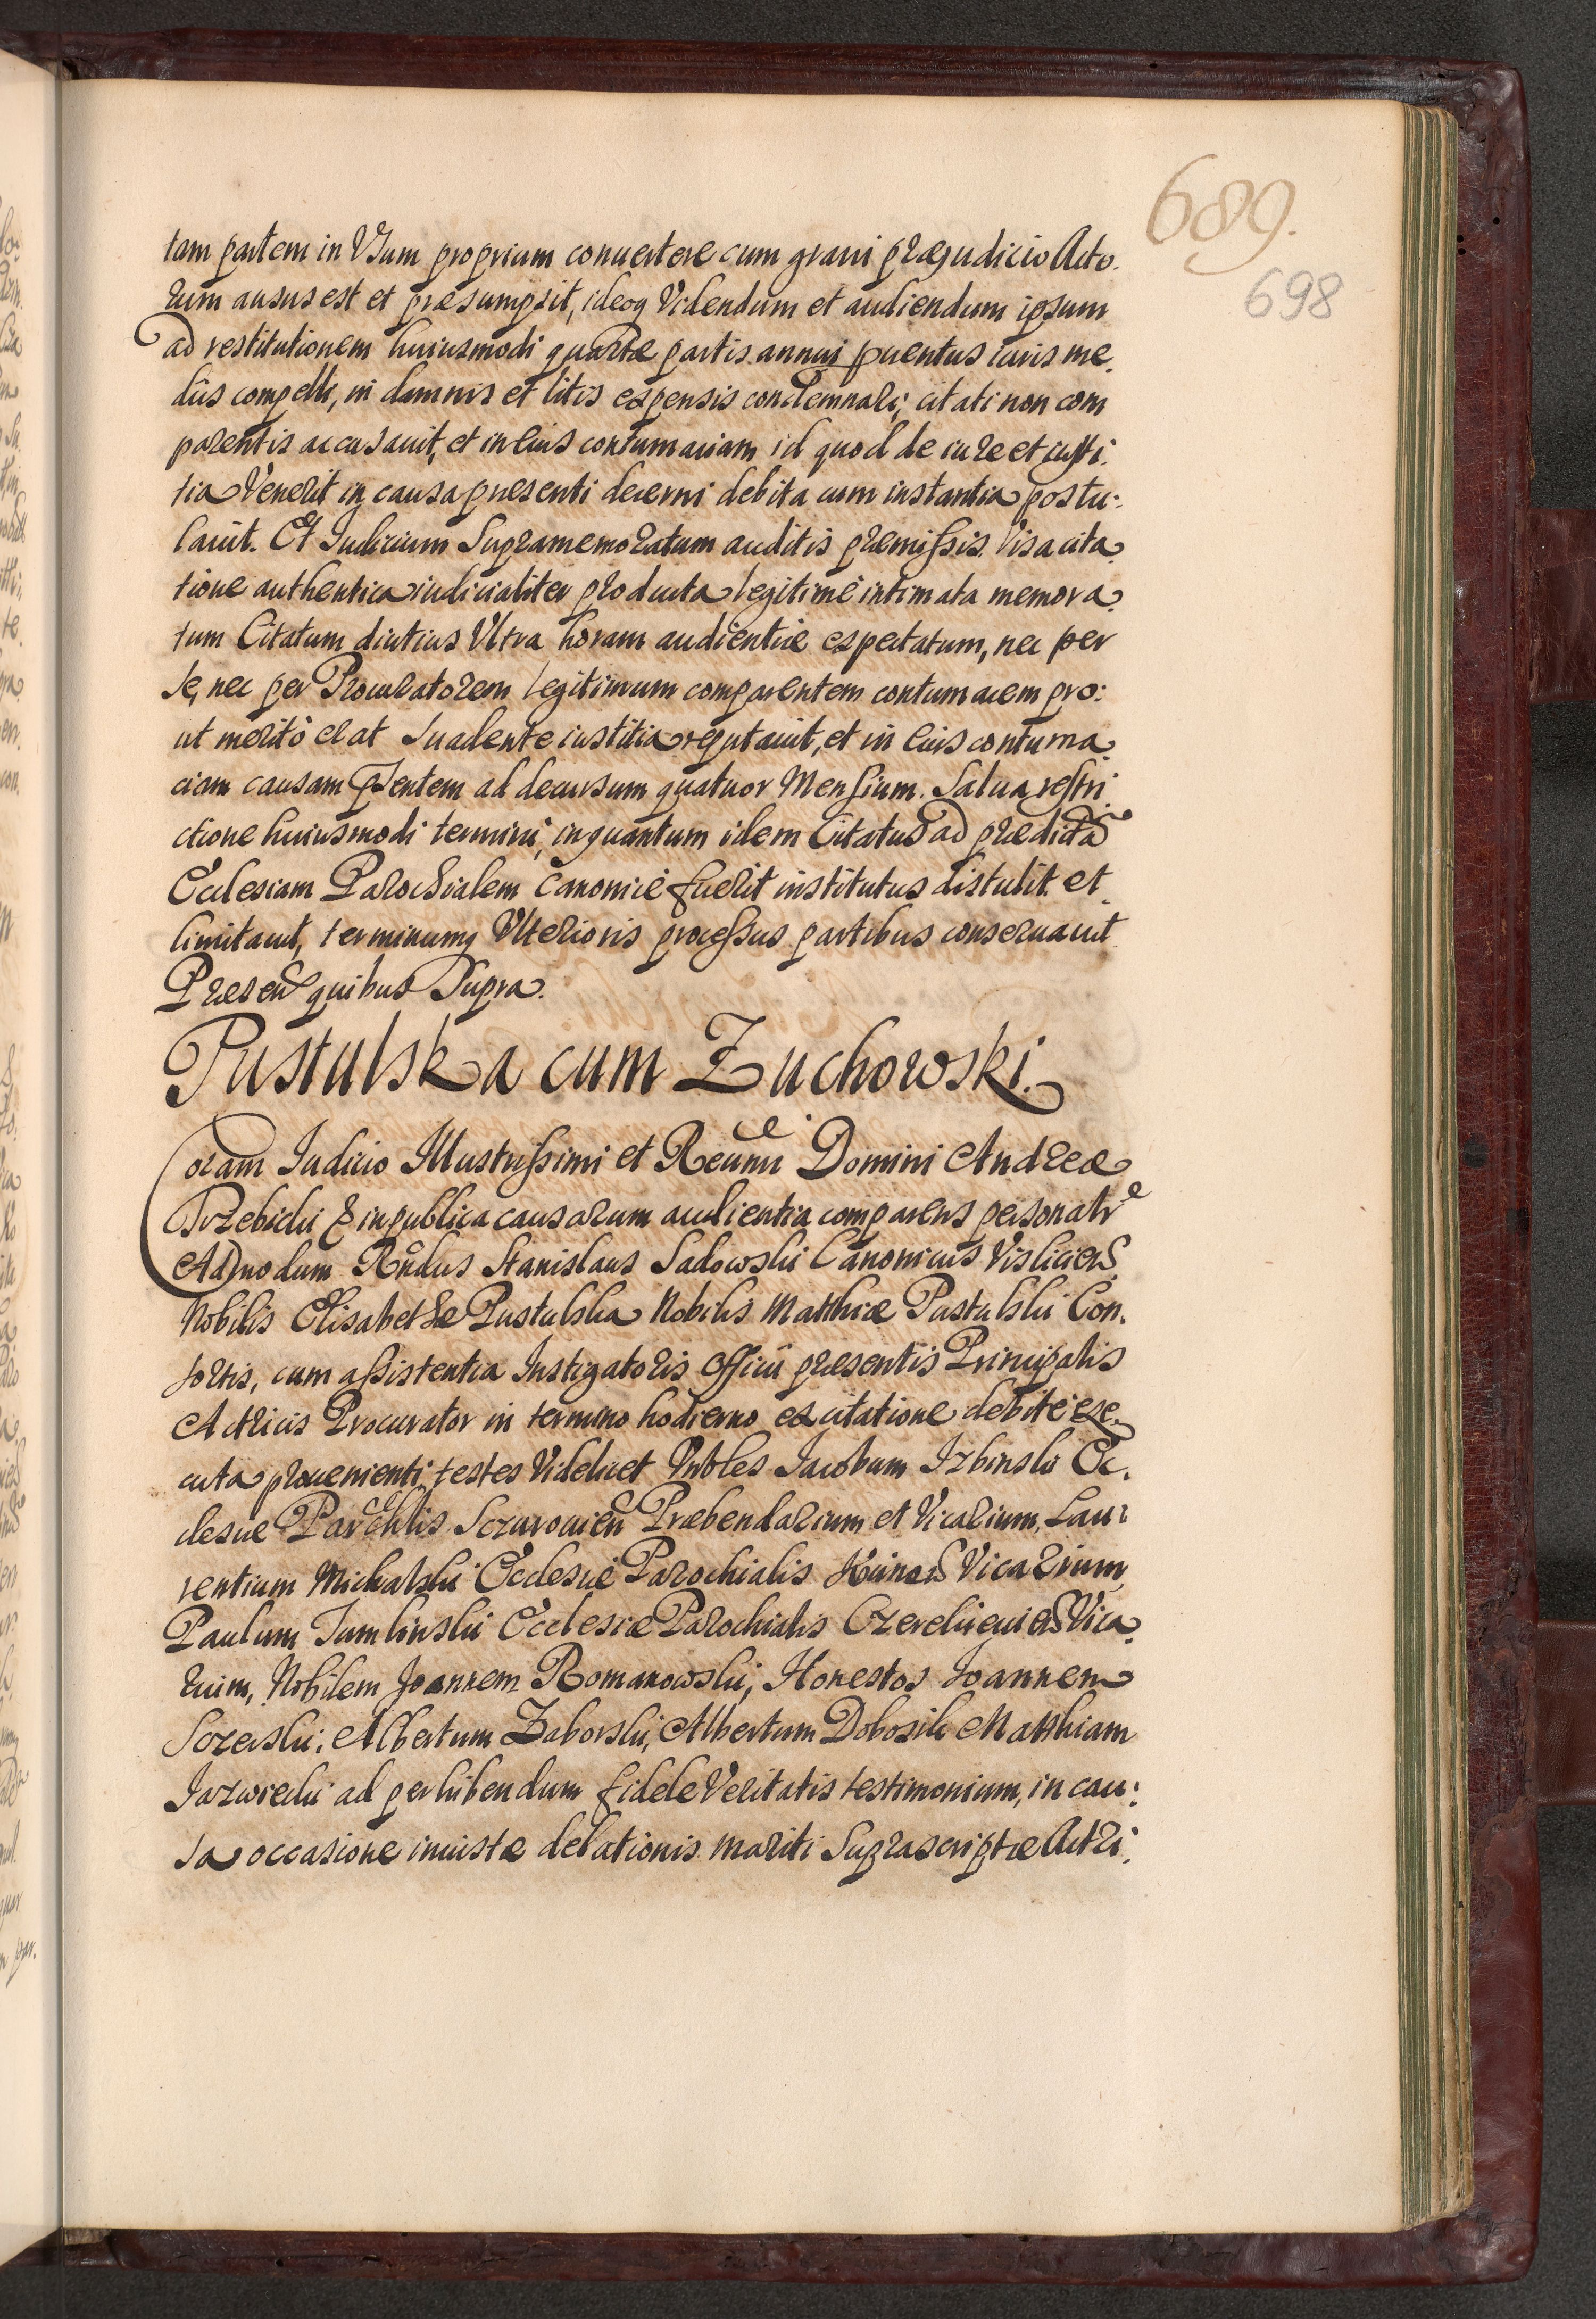 689.
698
tam partem in Vsum proprium conuertere cum graui præjudicio Acto.
rum ausus est et præsumpsit, ideoq Videndum et audiendum ipsum
ad restitutionem huiusmodi quartæ partis annui puentus iuris me.
diis compelli, in damnis et litis expensis condemnari; citati non com
parentis accusauit, et in eius contumaciam id quod de iure et iusti.
tia Venerit in causa præsenti decerni debita cum instantia postu:
lauit. Et Iudicium Supramemoratum auditis præmissis. Visa cita.
tione authentica iudicialiter producta legitimè intimata memora.
tum Citatum diutius Vltra horam audientiæ expectatum, nec per
se, nec per Procuratorem legitimum comparentem contumacem pro:
ut meritò erat suadente iustitia reputauit, et in eius contuma.
ciam causam psentem ad decursum quatuor Mensium. Salua restri
ctione huiusmodi termini, inquantum idem Citatus ad prædicta
Ecclesiam Parochialem canonicè fuerit institutus distulit et
limitauit, terminumq Vlterioris processus partibus conseruauit
Præsen quibus Supra.
Pustulska cum Zuchowski.
Coram Iudicio Illustrissimi et Reumi Domini Andreæ
Trzebicki & in publica causarum audientia comparens personalr
Admodum Rndus Stanislaus Sadowski Canonicus Vislicien
Nobilis Elisabethæ Pustulska Nobilis Matthiæ Pustulski Con.
sortis, cum assistentia Instigatoris Officii præsentis Principalis
Actricis Procurator in termino hodierno ex citatione debitè exe.
cuta prouenienti testes Videlicet Vnbles Iacobum Izbinski Ec.
clesiæ Parochlis Szczurouien Præbendarium et Vicarium, Lau:
rentium Michalski Ecclesiæ Parochialis Vicarium,
Paulum Tumlinski Ecclesiæ Parochialis Vica.
rium, Nobilem Joannem Romanowski, Honestos Joannem
Szczerski, Albertum Zaborski, Albertum Dobosik Matthiam
Jazwiecki ad perhibendum fidele Veritatis testimonium, in cau:
sa occasione iniustæ delationis mariti Suprascriptæ Actri.